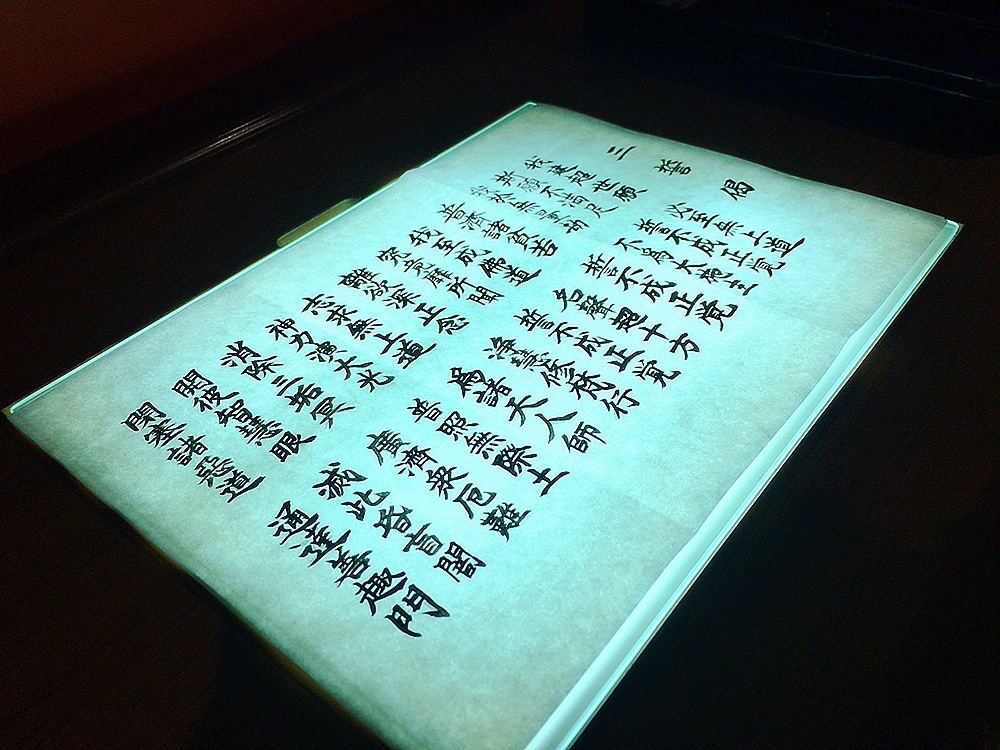 三誓偈
我建超世願 必至無上道
斯願不満足 誓不成正覚
我於無量劫 不為大施主
普濟諸貧苦 誓不成正覚
我至成佛道 名聲超十方
究竟靡所聞 誓不成正覚
離欲深正念 浄慧修梵行
志求無上道 為諸天人師
神力演大光 普照無際土
消除三垢冥 廣濟衆厄難
開彼智慧眼 滅此昏盲闇
閉塞諸惡道 通達善趣門